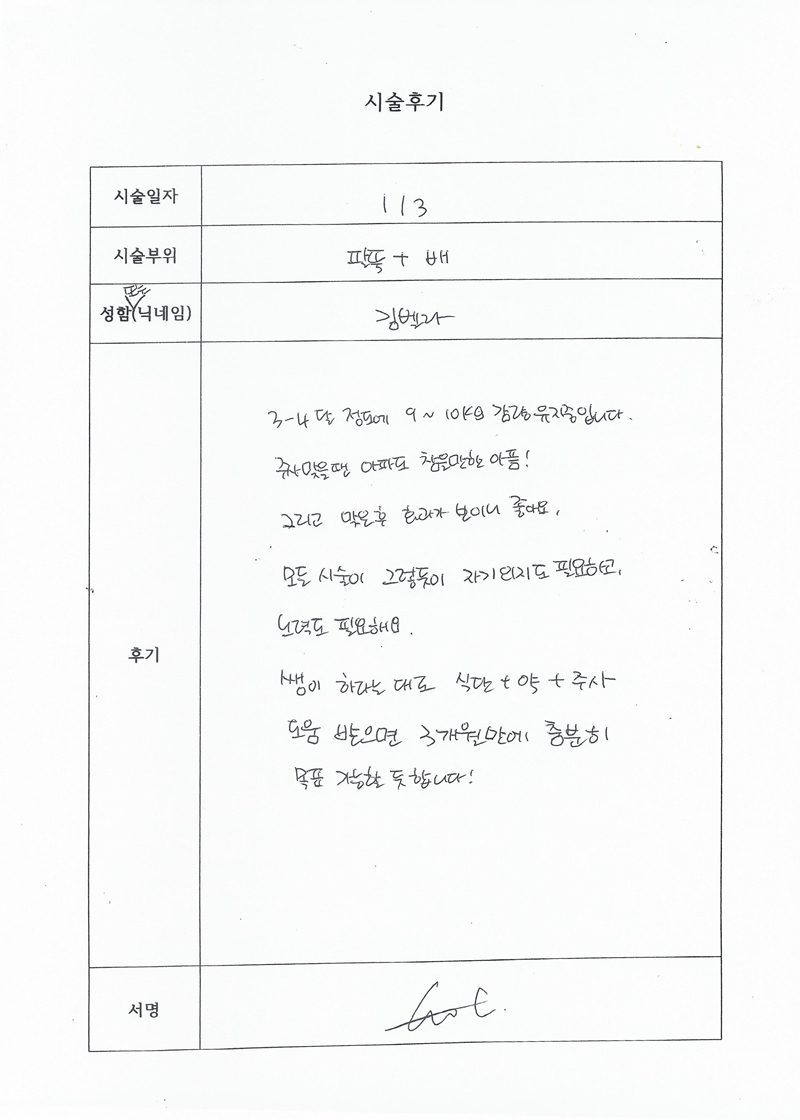 시술후기
시술일자 113
시술부위 팔뚝 + 배
또는
성함(닉네임) 김벡라
3-4달 정도에 9~10KG 감량후 유지중입니다.
주사맞을땐 아파도 참을만한 아픔!
그리고 맞은후 효과가 보이니 좋아요.
모든 시술이 그렇듯이 자기의지도 필요하고,
노력도 필요해요.
후기
쌤이 하라는 대로 식단 + 약 + 주사
도움 받으면 3개월만에 충분히
목표 가능할 듯합니다!
서명